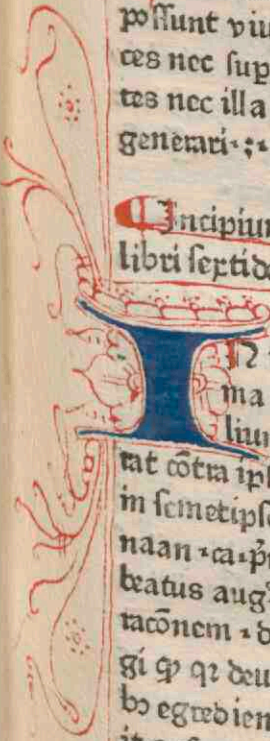 possunt viu
ces nec sup
tes nec illa
generari·:·
Incipiun
libri sextide
IN
ma
liun
tat cōtra ips
in semetips
naan ·ca·pͥ
beatus augꝰ
tacōnem ·d
gi ꝙ qꝛ deu
bꝫ egredien